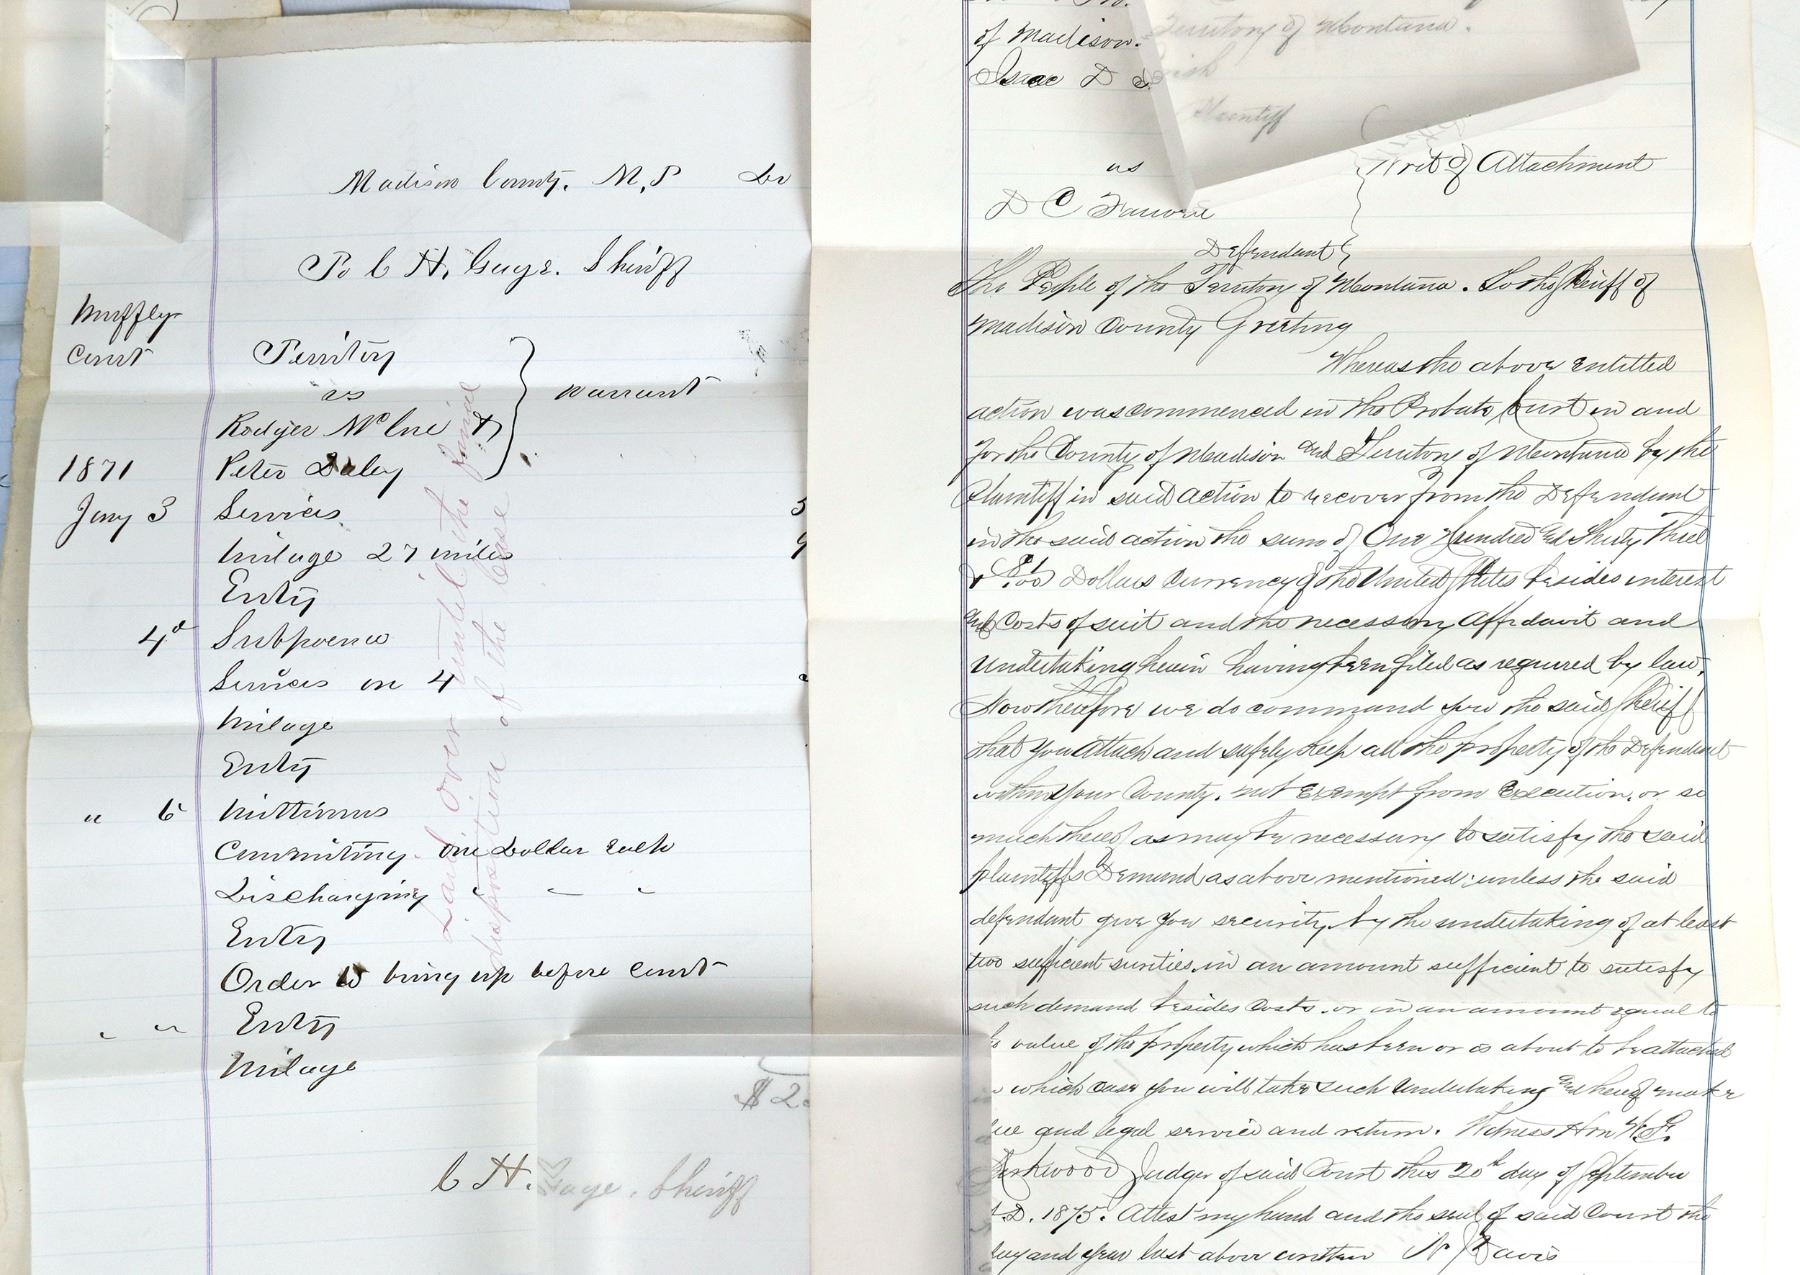 Madison County. M, T Dr
To C H, Guye. Sheriff
Court
Territory
vs
warrant
Rodger McCue &
1871 Peter Daley
Jany 3 Services 3
Milage 27 miles 9
Entry
4" Subpoena
Services on 4
Milage
Entry
" 6 Mittimus
Committing one Dollar Each
Discharging " " "
Entry
Order to bring up before court
" " Entry
Milage
$ 2
C H. Guye. Sheriff
Laid over until the final
disposition of the Case
of Madison. Territory of Montana.
Isaac D
Plaintiff
vs Writ of Attachment
D C
Defendant
The People of the Territory of Montana. To the Sheriff of
Madison County Greeting
Whereas the above entitled
action was commenced in the Probate Court in and
for the County of Madison and Territory of Montana by the
Plaintiff in said action to recover from the Defendant
in the said action the sum of One Hundred and Thirty Three
& 81/100 Dollars Currency of the United States besides interest
and Costs of suit and the necessary Affidavit and
Undertaking herein having been filed as required by law.
Now therefore we do command you the said Sheriff
that you Attach and safely keep all the property of the Defendant
within your County. not Exempt from Execution. or so
much thereof as may be necessary to satisfy the said
plaintiffs Demand as above mentioned: unless the said
defendant give you security by the undertaking of at least
two sufficient sureties. in an amount sufficient to satisfy
such demand besides Costs. or in an amount equal to
value of the property which has been or is about to be attached
which case you will take such Undertaking and hereof make
due and legal service and return. Witness Hon
Kirkwood Judge of said Court this 20th day of September
A.D. 1875. Attest my hand and the seal of said Court the
day and year last above written N Davis